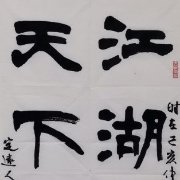 江湖
天下
时在己亥仲
定远人